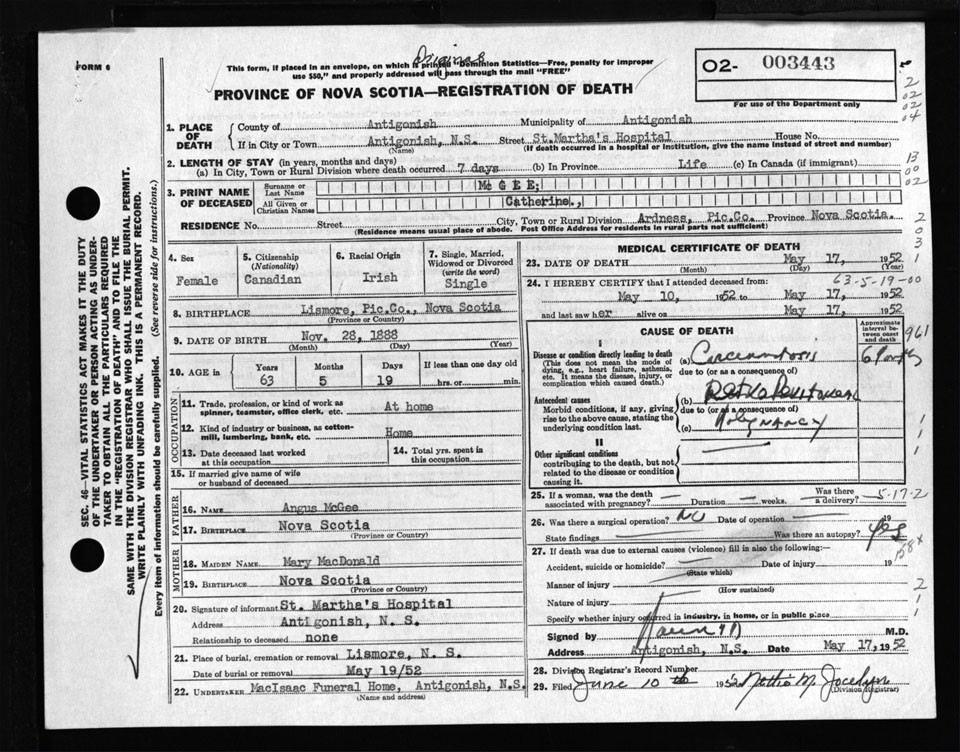 Original
FORM 6
This form, if placed in an envelope, on which is printed "Dominion Statistics—Free, penalty for improper
use $50," and properly addressed will pass through the mail "FREE"
PROVINCE OF NOVA SCOTIA—REGISTRATION OF DEATH
O2- 003443
For use of the Department only
2
02
02
04
1. PLACE OF DEATH
County of Antigonish Municipality of Antigonish
If in City or Town Antigonish, N.S. Street St.Martha's Hospital House No.
(Name) (If death occurred in a hospital or institution, give the name instead of street and number)
2. LENGTH OF STAY (in years, months and days)
(a) In City, Town or Rural Division where death occurred 7 days (b) In Province Life (c) In Canada (if immigrant)
13
00
02
3. PRINT NAME OF DECEASED
Surname or Last Name McGEE;
All Given or Christian Names Catherine.,
RESIDENCE No. Street City, Town or Rural Division Ardness, Pic.Co. Province Nova Scotia.
(Residence means usual place of abode. Post Office Address for residents in rural parts not sufficient)
2
0
3
1
4. Sex Female
5. Citizenship (Nationality) Canadian
6. Racial Origin Irish
7. Single, Married, Widowed or Divorced (write the word) Single
8. BIRTHPLACE Lismore, Pic.Co., Nova Scotia
(Province or Country)
9. DATE OF BIRTH Nov. 28, 1888
(Month) (Day) (Year)
10. AGE in Years Months Days If less than one day old
63 5 19 hrs. or min.
OCCUPATION
11. Trade, profession, or kind of work as
spinner, teamster, office clerk, etc. At home
12. Kind of industry or business, as cotton-
mill, lumbering, bank, etc. Home
13. Date deceased last worked
at this occupation
14. Total yrs. spent in
this occupation
15. If married give name of wife
or husband of deceased
FATHER
16. NAME Angus McGee
17. BIRTHPLACE Nova Scotia
(Province or Country)
MOTHER
18. MAIDEN NAME Mary MacDonald
19. BIRTHPLACE Nova Scotia
(Province or Country)
20. Signature of informant St. Martha's Hospital
Address Antigonish, N. S.
Relationship to deceased none
21. Place of burial, cremation or removal Lismore, N. S.
Date of burial or removal May 19/52
22. UNDERTAKER MacIsaac Funeral Home, Antigonish, N.S.
(Name and address)
MEDICAL CERTIFICATE OF DEATH
23. DATE OF DEATH May 17, 1952
(Month) (Day) (Year)
63-5-19-00
24. I HEREBY CERTIFY that I attended deceased from:
May 10, 1952 to May 17, 1952
and last saw her alive on May 17, 1952
CAUSE OF DEATH
Approximate interval between onset and death
961
I
Disease or condition directly leading to death
(This does not mean the mode of
dying, e.g., heart failure, asthenia,
etc. It means the disease, injury, or
complication which caused death.)
(a)
due to (or as a consequence of)
Antecedent causes
Morbid conditions, if any, giving
rise to the above cause, stating the
underlying condition last.
(b)
due to (or as a consequence of)
(c)
II
Other significant conditions
contributing to the death, but not
related to the disease or condition
causing it.
1
1
1
25. If a woman, was the death
associated with pregnancy? — Duration — weeks. Was there
a delivery? —
5-17-2
26. Was there a surgical operation? No Date of operation — 19
State findings Was there an autopsy? Yes
27. If death was due to external causes (violence) fill in also the following:—
Accident, suicide or homicide? Date of injury 19
(State which)
Manner of injury
(How sustained)
Nature of injury
Specify whether injury occurred in industry, in home, or in public place
2
1
1
Signed by M.D.
Address Antigonish, N.S. Date May 17, 1952
28. Division Registrar's Record Number
29. Filed June 10th 1952 Nettie M. Jocelyn
(Division Registrar)
SEC. 46—VITAL STATISTICS ACT MAKES IT THE DUTY
OF THE UNDERTAKER OR PERSON ACTING AS UNDER-
TAKER TO OBTAIN ALL THE PARTICULARS REQUIRED
IN THE "REGISTRATION OF DEATH" AND TO FILE THE
SAME WITH THE DIVISION REGISTRAR WHO SHALL ISSUE THE BURIAL PERMIT.
WRITE PLAINLY WITH UNFADING INK. THIS IS A PERMANENT RECORD.
Every item of information should be carefully supplied. (See reverse side for instructions.)